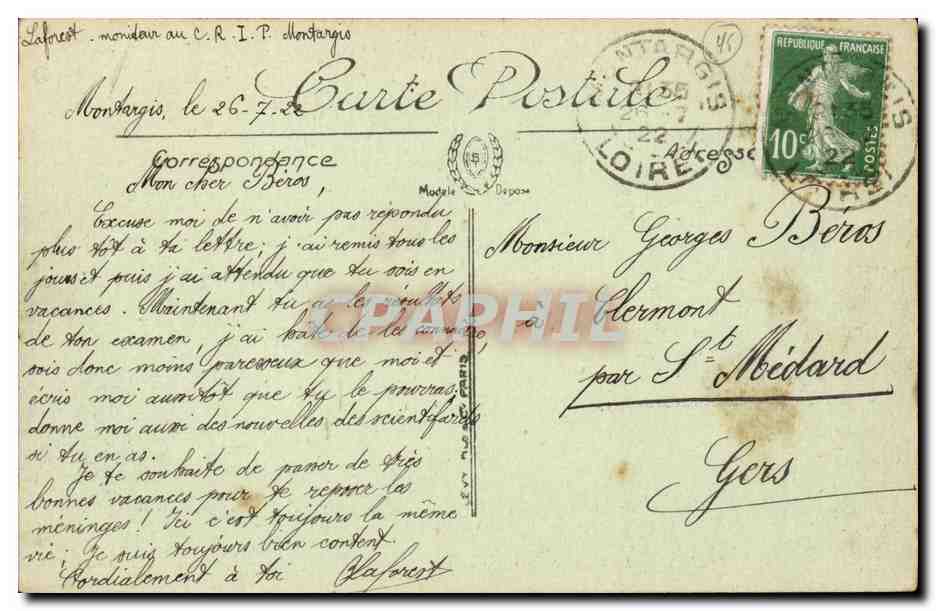 Laforest - moniteur au C. R. I. P. Montargis
45
Montargis, le 26-7-22
Carte Postale
Correspondance
Adresse
Modèle Déposé
MONTARGIS
26 - 7
22
LOIRET
RÉPUBLIQUE FRANÇAISE
10c
POSTES
22
Mon cher Béros,
Excuse moi de n'avoir pas répondu
plus tôt à ta lettre; j'ai remis tous les
jours et puis j'ai attendu que tu sois en
vacances. Maintenant tu as les résultats
de ton examen, j'ai hâte de les connaître,
sois donc moins paresseux que moi et
écris moi aussitôt que tu le pourras.
donne moi aussi des nouvelles des scientifards
si tu en as.
Je te souhaite de passer de très
bonnes vacances pour te reposer les
méninges! Ici c'est toujours la même
vie; Je suis toujours bien content.
Cordialement à toi Laforest
Monsieur Georges Béros
à Clermont
par St Médard
Gers
CPAPHIL
PARIS